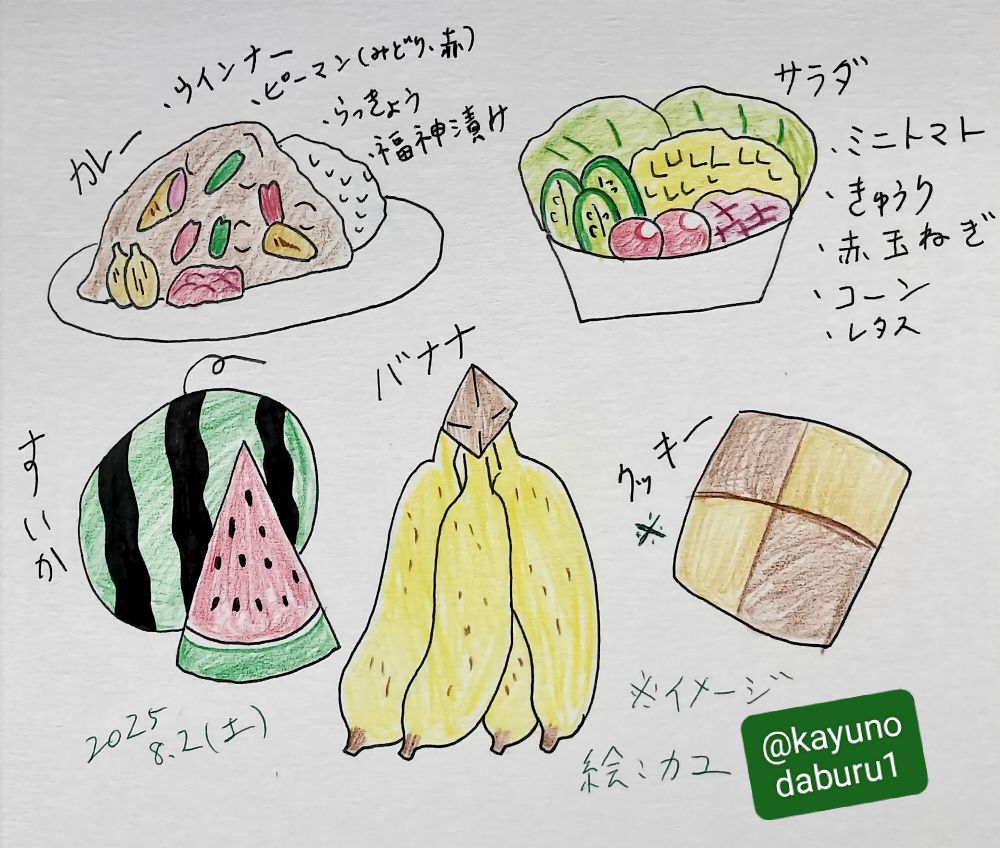 カレー
・ウインナー
・ピーマン(みどり、赤)
・らっきょう
・福神漬け
サラダ
・ミニトマト
・きゅうり
・赤玉ねぎ
・コーン
・レタス
すいか
バナナ
クッキー
※
※イメージ
2025
8.2(土)
絵:カユ
@kayuno
daburu1